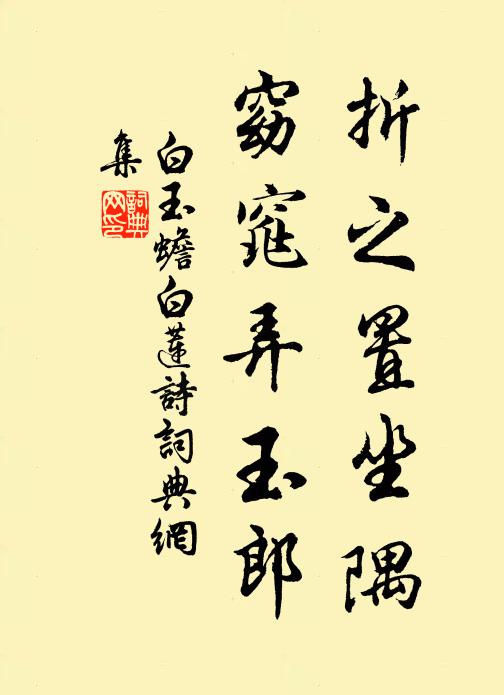 折之置坐隅
窈窕弄玉郎
白玉蟾白蓮詩詞典網
集
詞典
网印